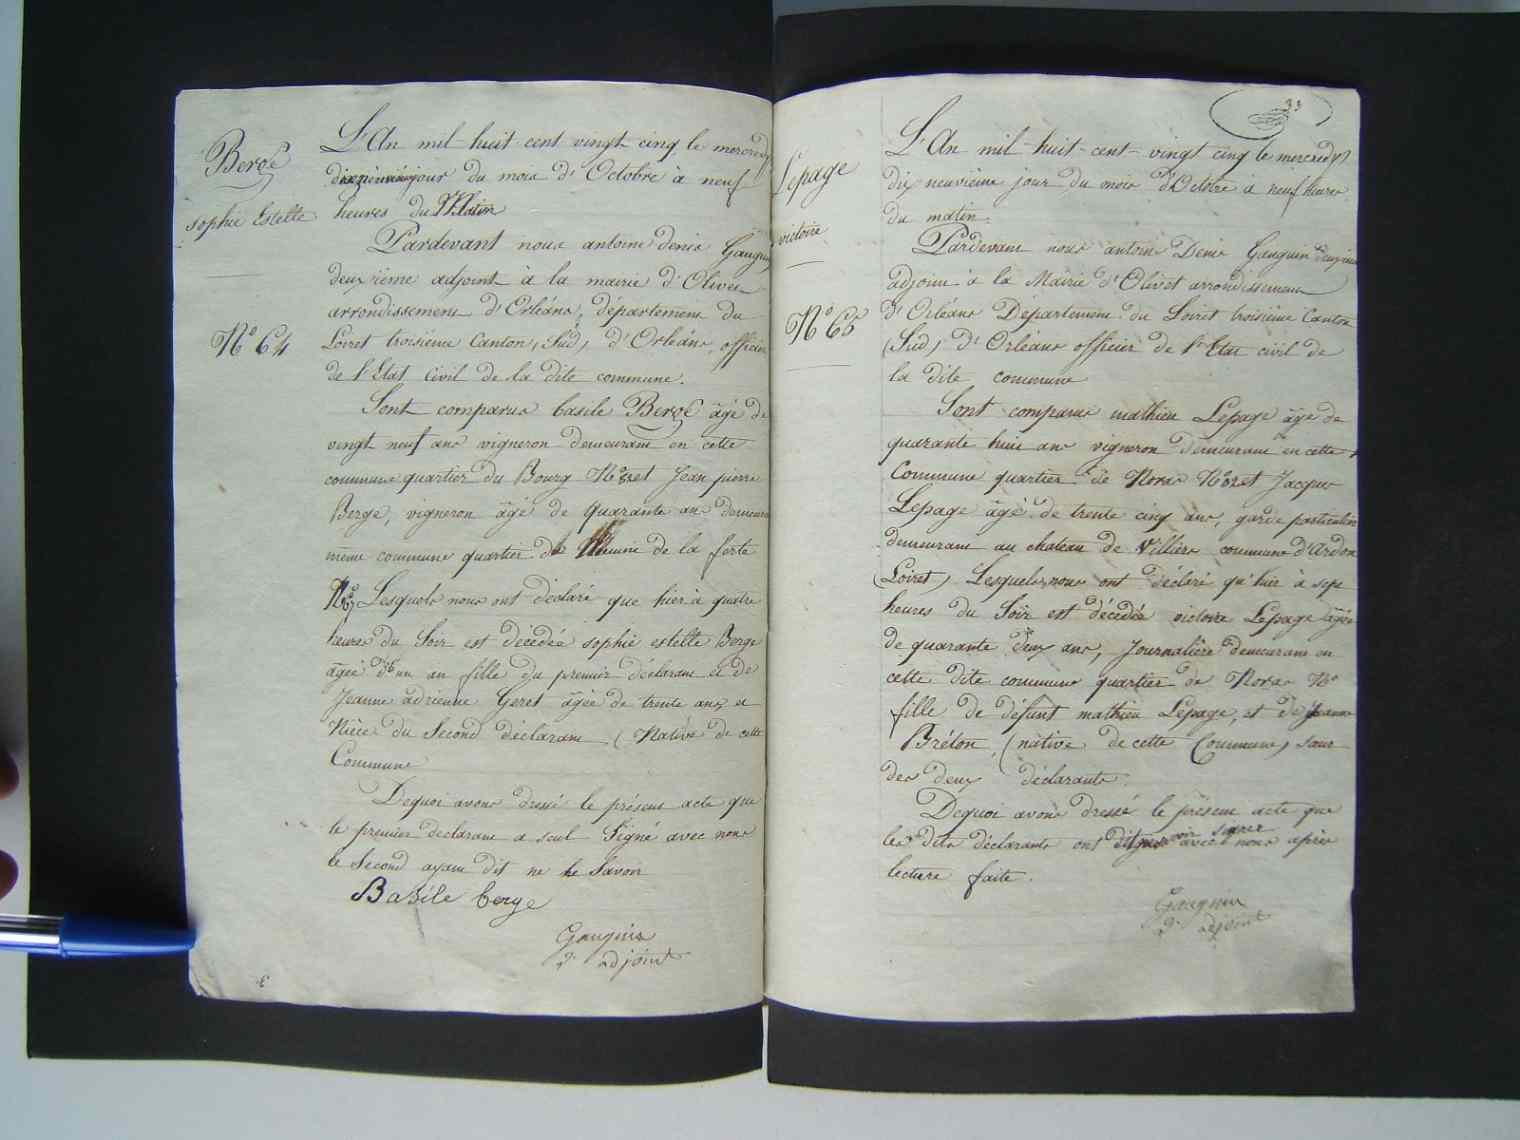 Bergé
sophie Estelle
N° 64
L'An mil huit cent vingt cinq le mercredy
dixneuvieme jour du mois d'Octobre à neuf
heures du Matin
Pardevant nous antoine denis Gauguin
deuxiême adjoint à la mairie d'Olivet
arrondissement d'Orléans, département du
Loiret troisième Canton, (Sud) d'Orléans, officier
de l'Etat Civil de la dite commune.
Sont comparus basile Bergé âgé de
vingt neuf ans vigneron demeurant en cette
commune quartier du Bourg N° et Jean pierre
Berge, vigneron âgé de quarante ans demeurant
même commune quartier de de la ferté
N° Lesquels nous ont déclaré que hier à quatre
heures du Soir est décédée sophie estelle Berge
âgée d'un an fille du premier déclarant et de
Jeanne adrienne Geret âgée de trente ans et
Nièce du Second déclarant (Native de cette
Commune
Dequoi avons dressé le présent acte que
le premier declarant a seul Signé avec nous
le Second ayant dit ne le Savoir
Basile berge
Gauguin
2e adjoint
33
Lepage
victoire
N° 65
L'An mil-huit-cent-vingt cinq le mercredy
dix neuvième jour du mois d'Octobre à neuf heures
du matin.
Pardevant nous antoine Denis Gauguin deuxieme
adjoint à la Mairie d'Olivet arrondissement
d'Orléans Département du Loiret troisième Canton
(Sud) d'Orléans officier de l'Etat civil de
la dite commune
Sont comparus mathieu Lepage âge de
quarante huit ans vigneron demeurant en cette
Commune quartier de Noras N° et Jacques
Lepage âgé de trente cinq ans, garde particulier
demeurant au chateau de Villiers commune d'Ardon
(Loiret) Lesquels nous ont déclaré qu'hier à sept
heures du Soir est décédée victoire Lepage âgée
de quarante deux ans, Journalière demeurant en
cette dite commune quartier de Noras N°
fille de défunt mathieu Lepage, et de Jeanne
Bréton, (native de cette Commune) sœur
des deux déclarants.
Dequoi avons dressé le présent acte que
les dits déclarants ont dit signer avec nous après
lecture faite.
Gauguin
2e adjoint